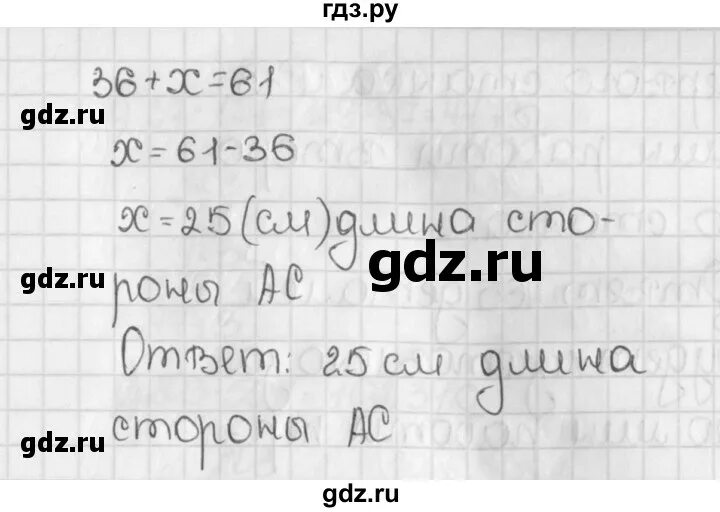 гдз.ру
36+x=61
gdz.ru
x=61-36
x=25(см)длина сто-
gdz.ru
gdz.ru
роны АС
Ответ: 25 см длина
стороны АС
gdz.ru
gdz.ru